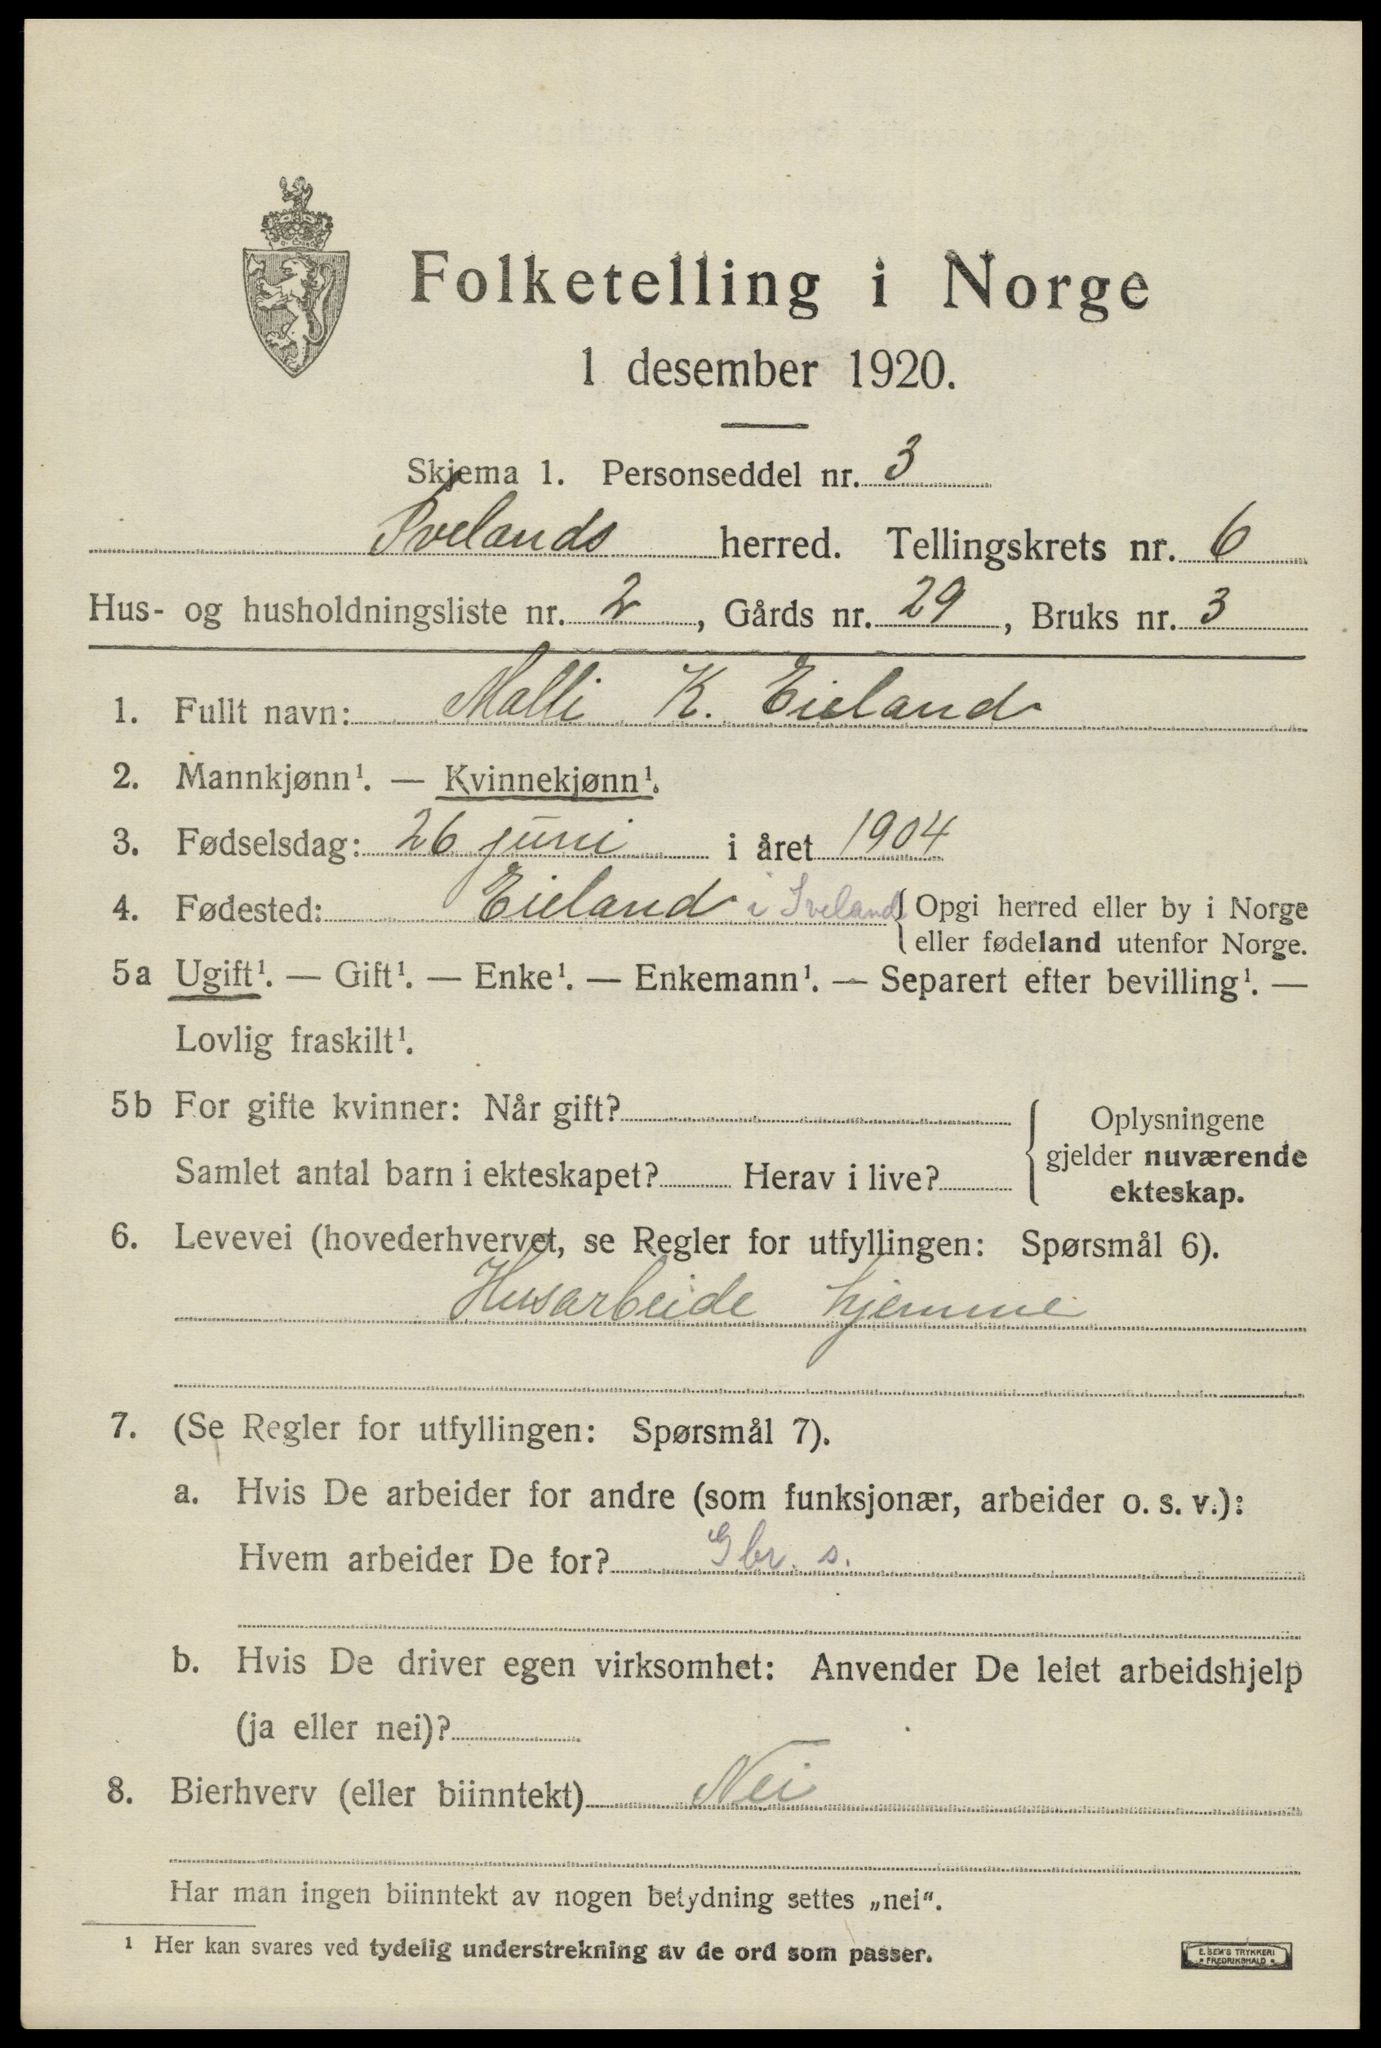 Folketelling i Norge
1 desember 1920.
Skjema 1. Personseddel nr. 3
Ivelands herred. Tellingskrets nr. 6
Hus- og husholdningsliste nr. 2, Gårds nr. 29, Bruks nr. 3
1. Fullt navn: Malli K. Eieland
2. Mannkjønn¹. — Kvinnekjønn¹.
3. Fødselsdag: 26 juni i året 1904
4. Fødested: Eieland i Iveland { Opgi herred eller by i Norge
eller fødeland utenfor Norge.
5a Ugift¹. — Gift¹. — Enke¹. — Enkemann¹. — Separert efter bevilling¹. —
Lovlig fraskilt¹.
5b For gifte kvinner: Når gift? { Oplysningene
gjelder nuværende
Samlet antal barn i ekteskapet? Herav i live?
ekteskap.
6. Levevei (hovederhvervet, se Regler for utfyllingen: Spørsmål 6).
Husarbeide hjemme
7. (Se Regler for utfyllingen: Spørsmål 7).
a. Hvis De arbeider for andre (som funksjonær, arbeider o. s. v.):
Hvem arbeider De for? Gbr. s.
b. Hvis De driver egen virksomhet: Anvender De leiet arbeidshjelp
(ja eller nei)?
8. Bierhverv (eller biinntekt) Nei
Har man ingen biinntekt av nogen betydning settes „nei“.
¹ Her kan svares ved tydelig understrekning av de ord som passer.
E. SEM'S TRYKKERI
FREDRIKSHALD